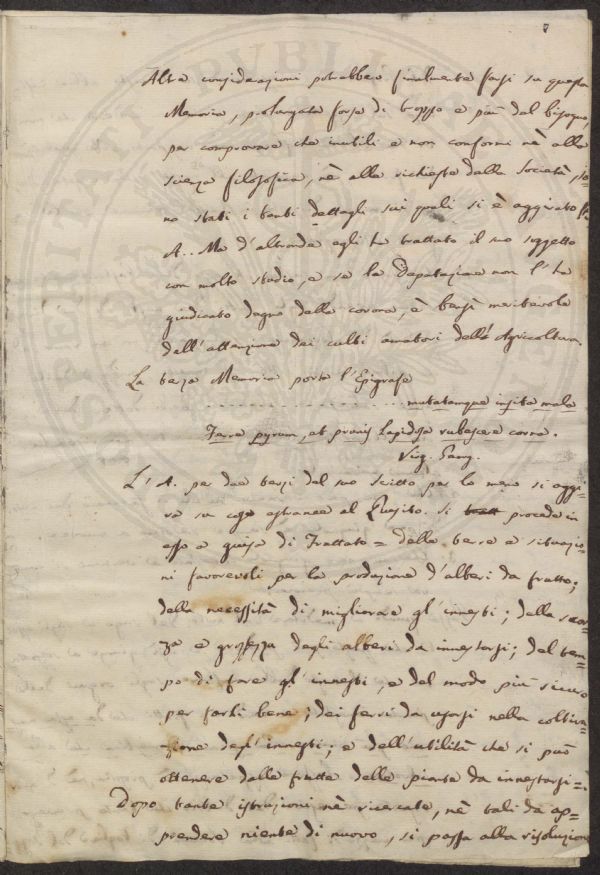 7
Altre considerazioni potrebbero finalmente farsi su questa
Memoria, prolungata forse di troppo e più del bisogno,
per comprovare che inutili e non conformi nè alla
scienza filosofica, nè alla richiesta della Società, so-
no stati i tanti dettagli sui quali si è aggirato l'
A... Ma d'altronde egli ha trattato il suo soggetto
con molto studio, e se la Deputazione non l'ha
giudicato degno della corona, è bensì meritevole
dell'attenzione dei culti amatori dell'Agricoltura.
La terza Memoria porta l'Epigrafe
. . . . . . . . . . . . mutatamque insita mala
Ferre pyrum, et prunis lapidosa rubescere corna.
Virg. Georg.
L'A. per due terzi del suo scritto per lo meno si aggi-
ra su cose estranee al Quesito. Si procede in
esso a guisa di Trattato = delle terre e situazio-
ni favorevoli per la produzione d'alberi da frutto;
della necessità di migliorare gl'innesti; della scor-
za e grossezza degli alberi da innestarsi; del tem-
po di fare gl'innesti, e del modo più sicuro
per farli bene; dei ferri da usarsi nella coltiva-
zione degl'innesti; e dell'utilità che si può
ottenere dalle frutta delle piante da innestarsi =.
Dopo tante istruzioni nè ricercate, nè tali da ap-
prendere niente di nuovo, si passa alla risoluzione